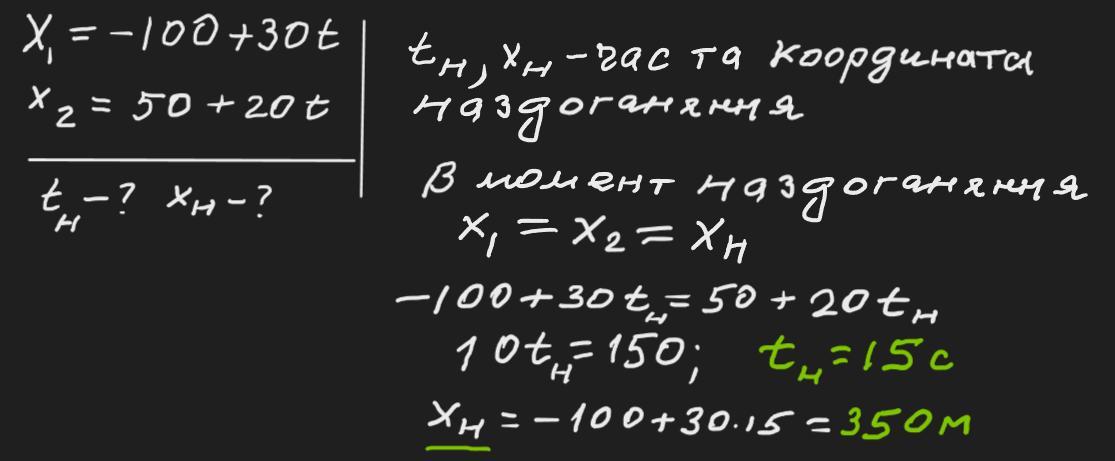 X₁ = -100 + 30t
x₂ = 50 + 20t
tн - ? xн - ?
tн, xн - час та координата
наздоганяння
В момент наздоганяння
x₁ = x₂ = xн
-100 + 30tн = 50 + 20tн
10tн = 150; tн = 15 с
xн = -100 + 30·15 = 350м